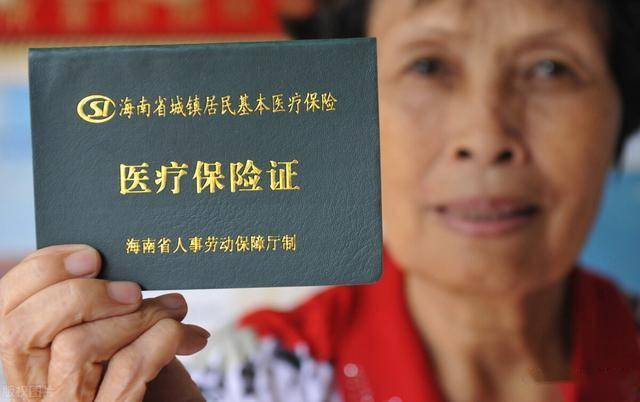 SI 海南省城镇居民基本医疗保险
医疗保险证
海南省人事劳动保障厅制
版权图片